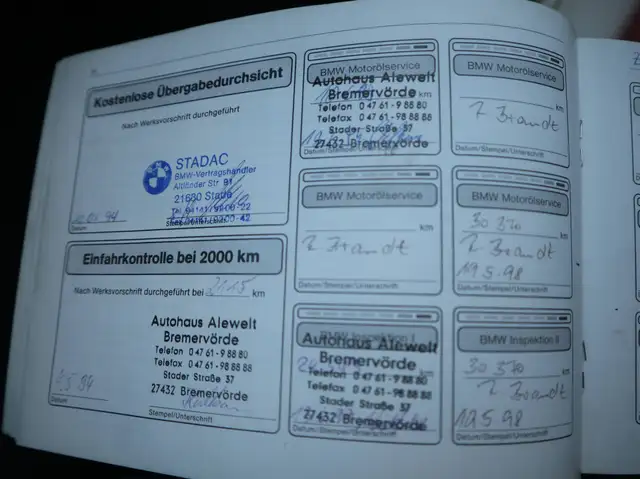 Kostenlose Übergabedurchsicht
Nach Werksvorschrift durchgeführt
STADAC
BMW-Vertragshändler
Altländer Str. 91
21680 Stade
Datum
Einfahrkontrolle bei 2000 km
Nach Werksvorschrift durchgeführt bei 2115 km
Autohaus Alewelt
Bremervörde
Telefon 0 47 61 - 9 88 80
Telefax 0 47 61 - 9 88 88
Stader Straße 37
27432 Bremervörde
Datum
Stempel/Unterschrift
BMW Motorölservice
Autohaus Alewelt
Bremervörde
km
Telefon 0 47 61 - 9 88 80
Telefax 0 47 61 - 9 88 88
Stader Straße 37
27432 Bremervörde
Datum/Stempel/Unterschrift
BMW Motorölservice
km
Brandt
Datum/Stempel/Unterschrift
BMW Motorölservice
km
Brandt
Datum/Stempel/Unterschrift
BMW Motorölservice
30 370 km
Brandt
19.5.98
Datum/Stempel/Unterschrift
BMW Inspektion I
Autohaus Alewelt
Bremervörde
Telefon 0 47 61 - 9 88 80
Telefax 0 47 61 - 9 88 88
Stader Straße 37
27432 Bremervörde
Datum/Stempel/Unterschrift
BMW Inspektion II
30 370 km
Brandt
19.5.98
Datum/Stempel/Unterschrift